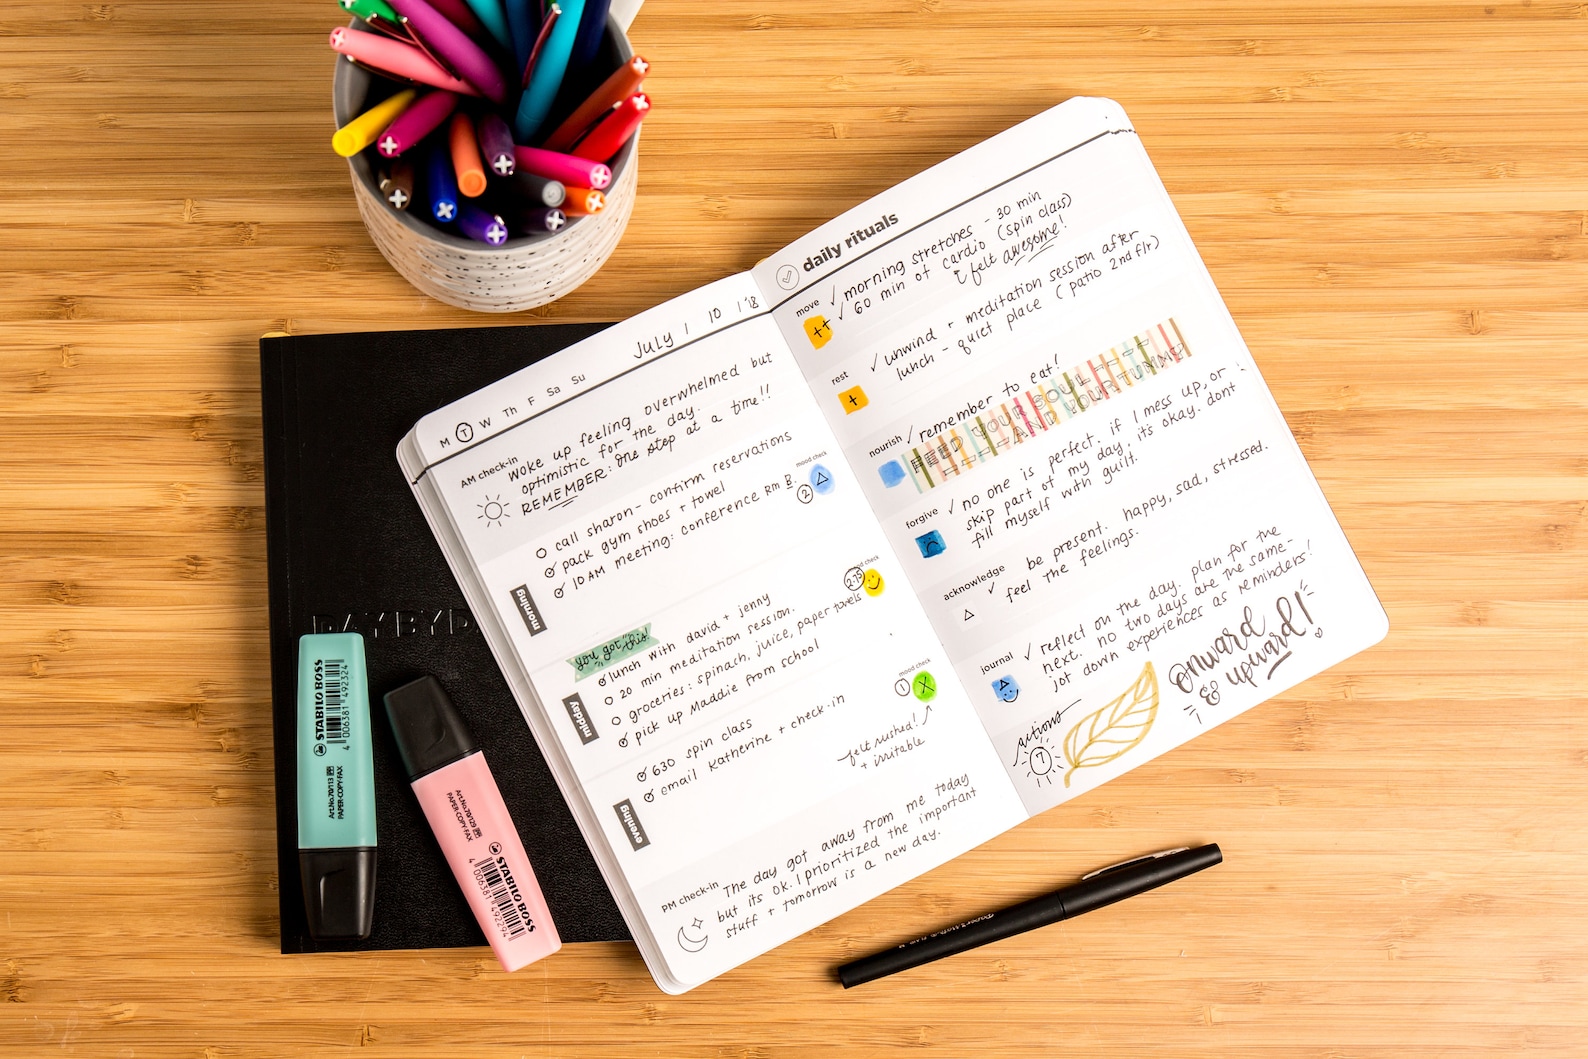 JULY | 10 | '18
M T W Th F Sa Su
AM check-in
Woke up feeling overwhelmed but
optimistic for the day.
REMEMBER: one step at a time!!
morning
call sharon - confirm reservations
pack gym shoes + towel
10 AM meeting: conference Rm B.
mood check
2
you got this!
midday
lunch with david + jenny
20 min meditation session.
groceries: spinach, juice, paper towels
pick up Maddie from school
mood check
2.75
evening
630 spin class
email Katherine + check-in
mood check
1
felt rushed!
+ irritable
PM check-in
The day got away from me today
but its ok. I prioritized the important
stuff + tomorrow is a new day.
daily rituals
move
++
morning stretches - 30 min
60 min of cardio (spin class)
I felt awesome!
rest
+
unwind + meditation session after
lunch - quiet place (patio 2nd flr)
nourish
remember to eat!
FEED YOUR SOUL
AND YOUR TUMMY
forgive
no one is perfect. if I mess up, or
skip part of my day, it's okay. dont
fill myself with guilt.
acknowledge
be present. happy, sad, stressed.
feel the feelings.
journal
reflect on the day. plan for the
next. no two days are the same -
jot down experiences as reminders!
actions
7
onward
& upward!
DAYBYDA
STABILO BOSS
4 006381 492324
Art.No.70/113
PAPER·COPY·FAX
STABILO BOSS
4 006381 492294
Art.No.70/129
PAPER·COPY·FAX